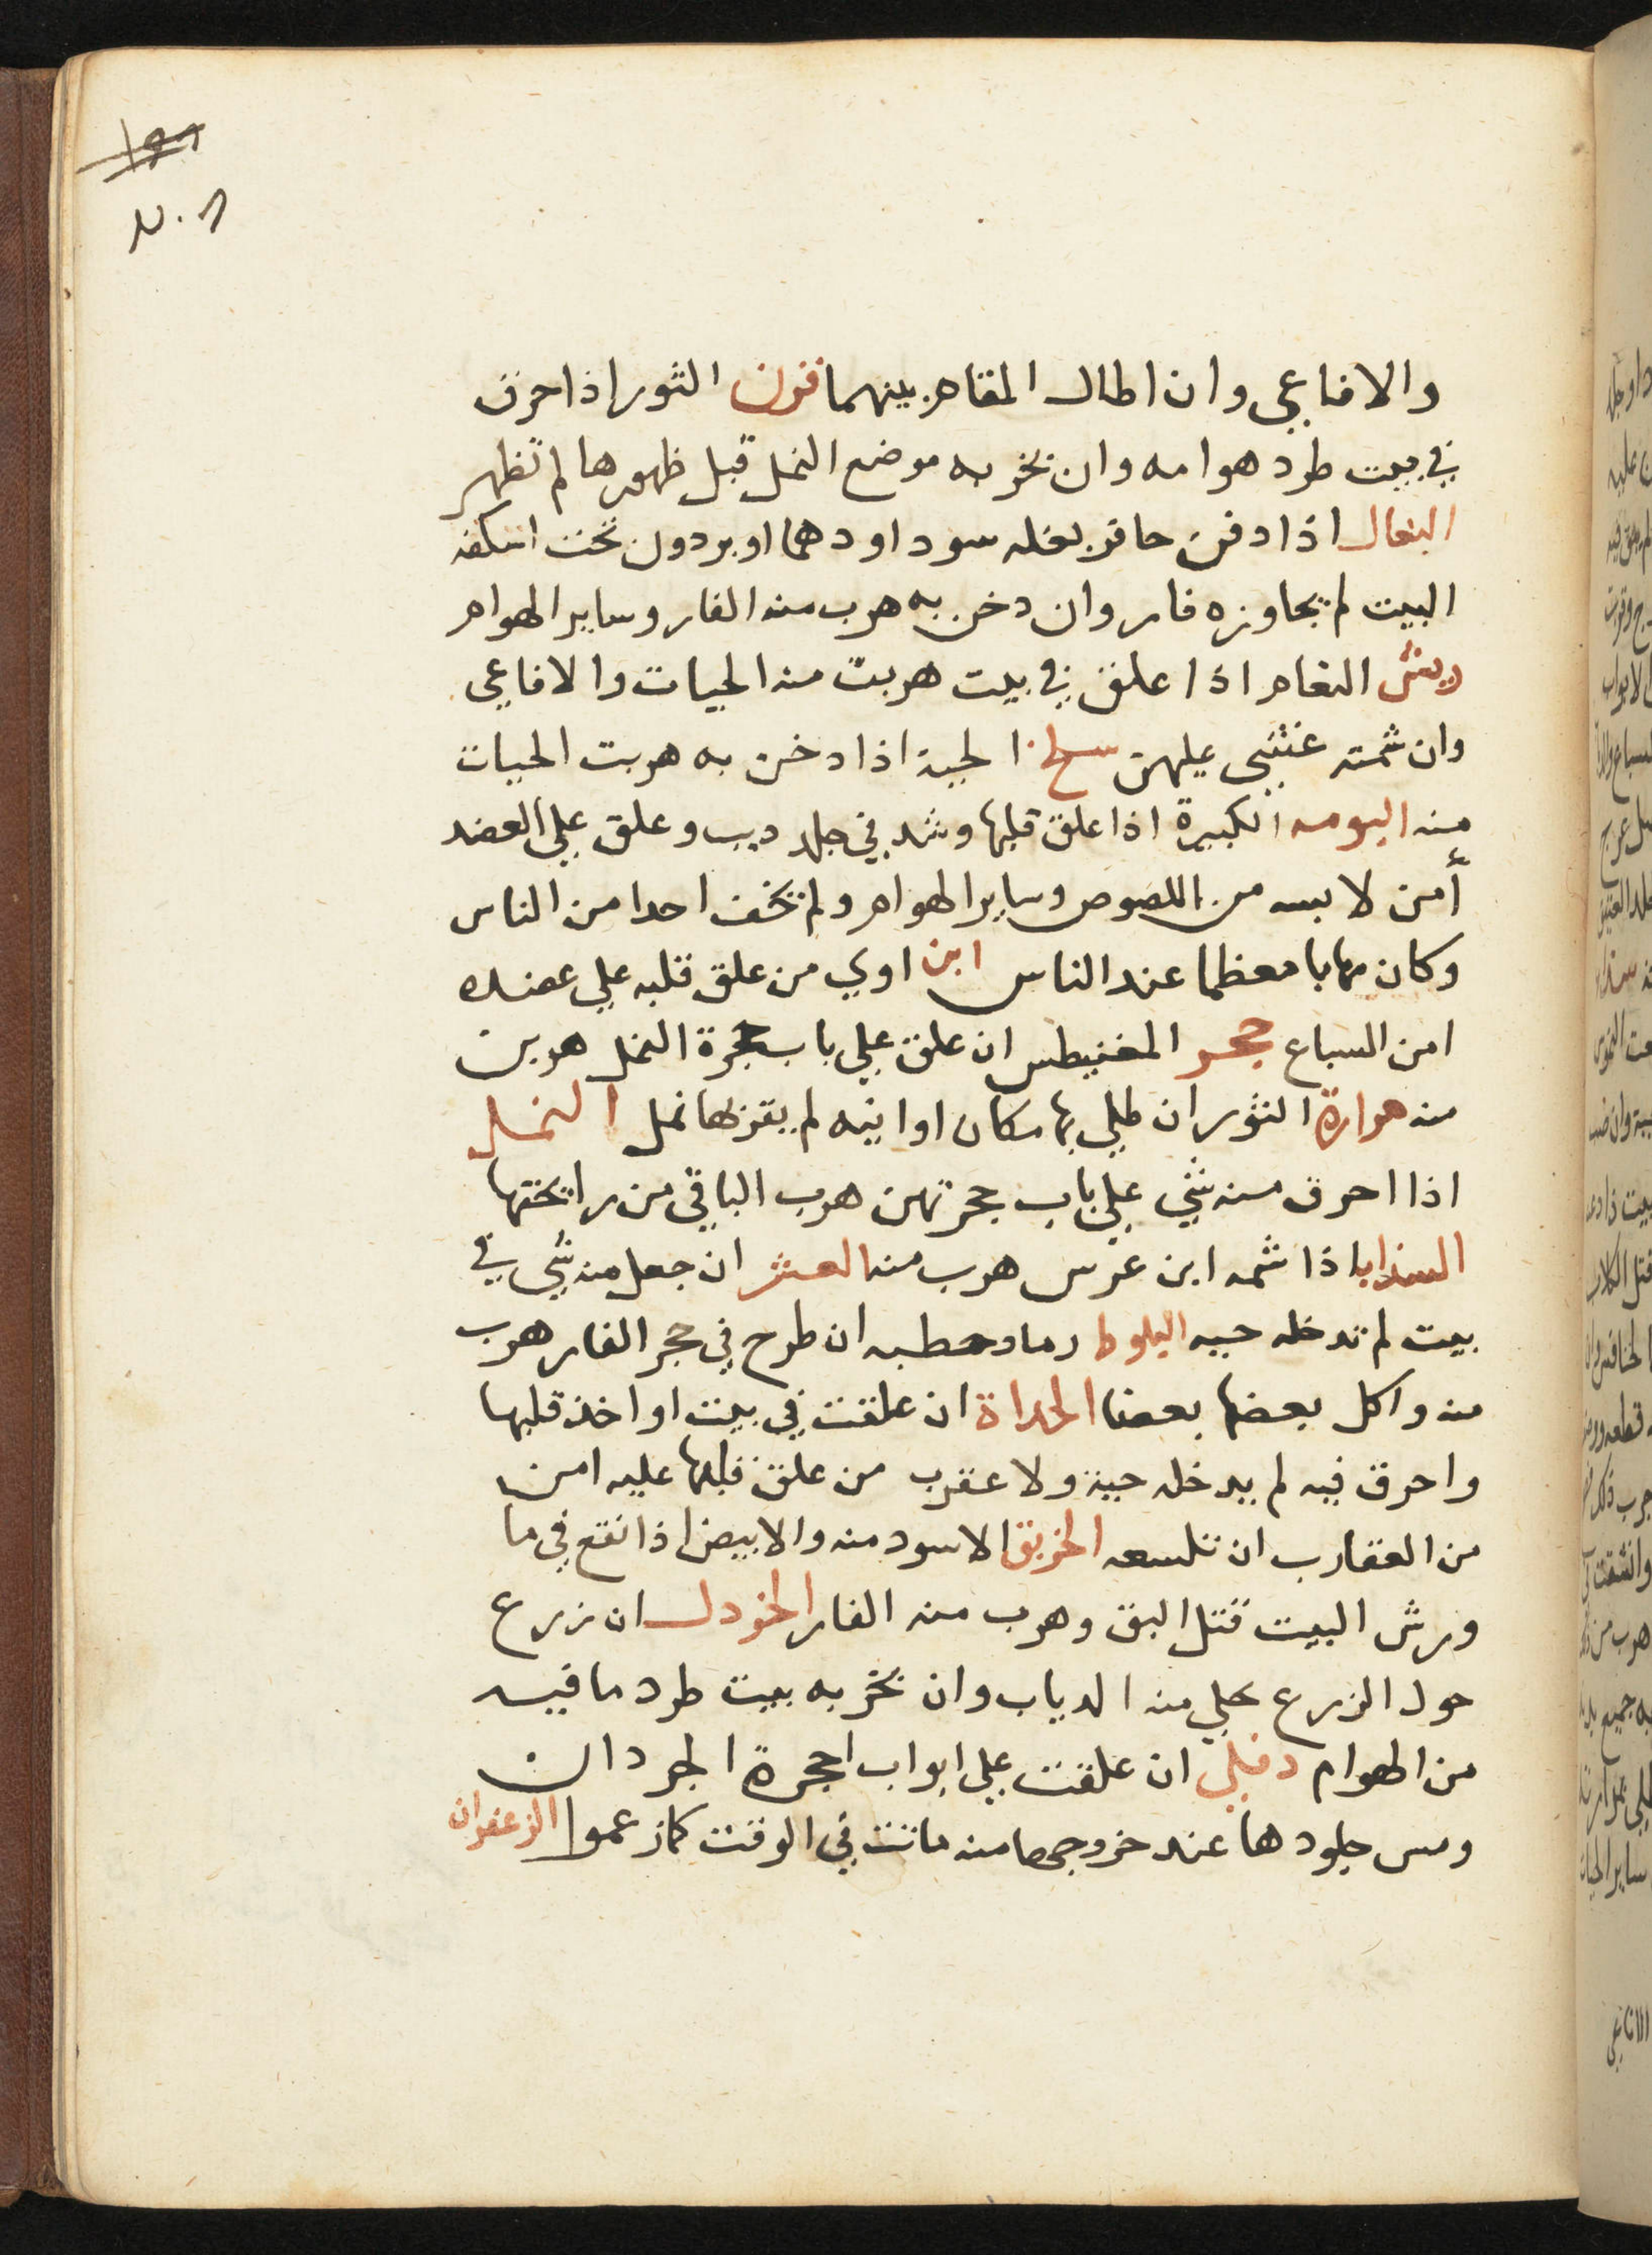 والافاعي وان اطال المقام بينهما قرن الثور اذا احرق
في بيت طرد هوامه وان بخر به موضع النمل قبل ظهورها لم تظهر
البغال اذا دفن حافر بغله سودا ودهما او بردون تحت اسكفه
البيت لم يجاوزه فار وان دخن به هرب منه الفار وساير الهوام
ريش النعام اذا علق في بيت هربت منه الحيات والافاعي
وان شمته غشي عليهن سلخ الحية اذا دخن به هربت الحيات
منه البومه الكبيرة اذا علق قلبها وشد في جلد ديب وعلق علي العضد
أمن لابسه من اللصوص وساير الهوام ولم يخف احدا من الناس
وكان مهابا معظما عند الناس ابن اوي من علق قلبه علي عضده
امن السباع حجر المغنيطس ان علق علي باب حجرة النمل هربت
منه مرارة الثور ان طلي بها مكان او انيه لم يقربها نمل النمل
اذا احرق منه شي علي باب حجرتهن هرب الباقي من رايحتها
السنداب اذا شمه ابن عرس هرب منه العشر ان جعل منه شي في
بيت لم تدخله حيه البلوط رماد حطبه ان طرح في حجر الفار هرب
منه واكل بعضها بعضا الحداة ان علقت في بيت او اخذ قلبها
واحرق فيه لم يدخله حية ولا عقرب من علق قلبها عليه امن
من العقارب ان تلسعه الخربق الاسود منه والابيض اذا نقع في ما
ورش البيت قتل البق وهرب منه الفار الخردل ان زرع
حول الزرع علي منه الدياب وان بخر به بيت طرد ما فيه
من الهوام دفلي ان علقت علي ابواب احجرة الجردان
ومس جلودها عند خروجها منه ماتت في الوقت كما زعموا الزعفران